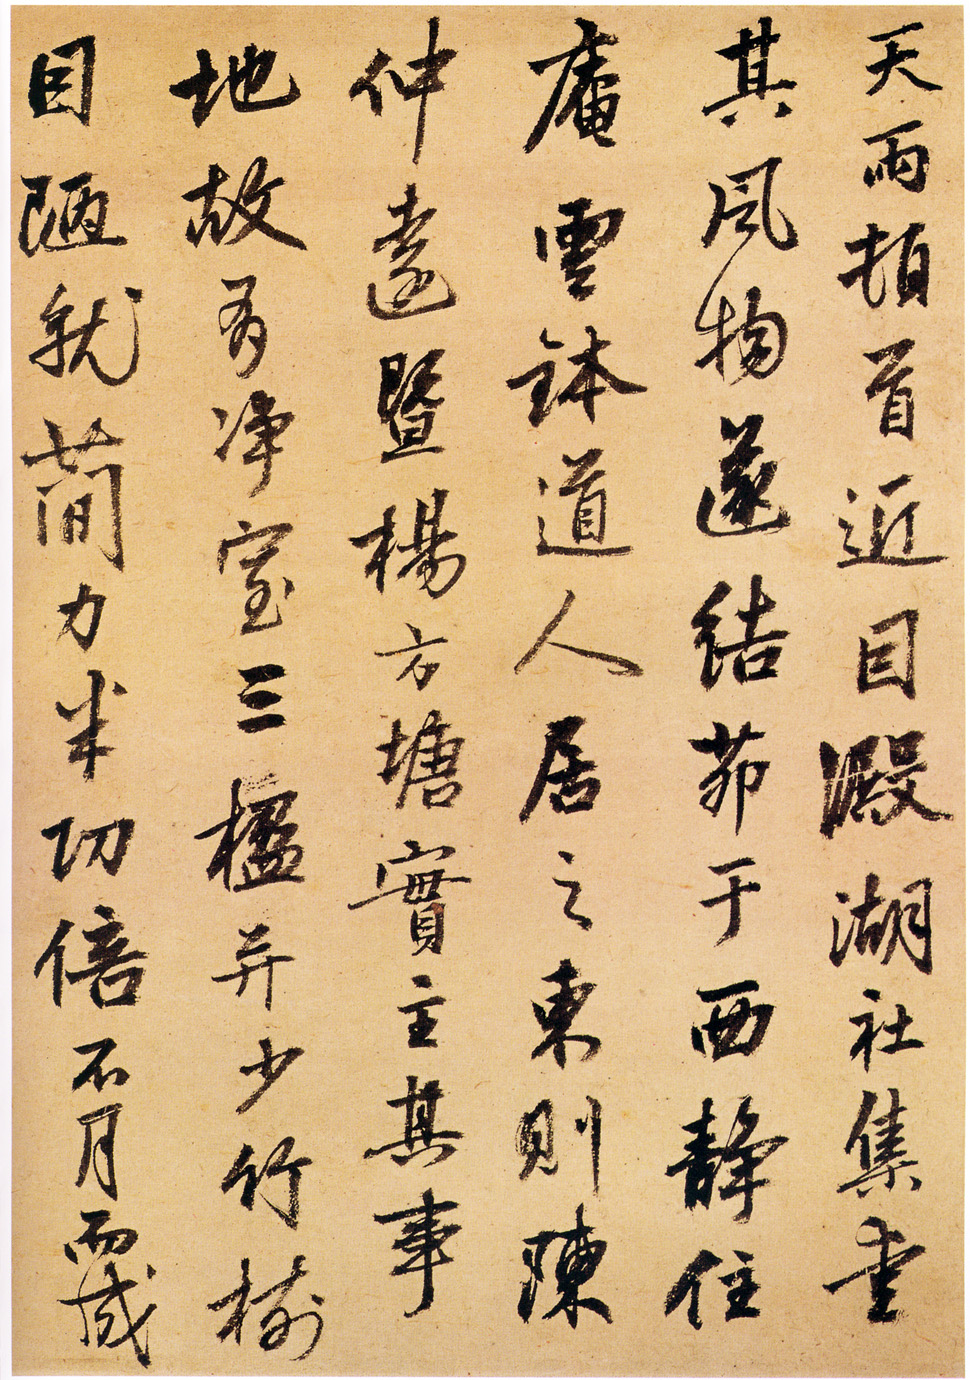 天雨頓首近因殿湖社集愛
其風物遂結茆于西静住
庵雲鉢道人居之東則陳
仲遠暨楊方塘實主其事
地故有净室三楹并少竹樹
因陋就簡力半功倍不月而成